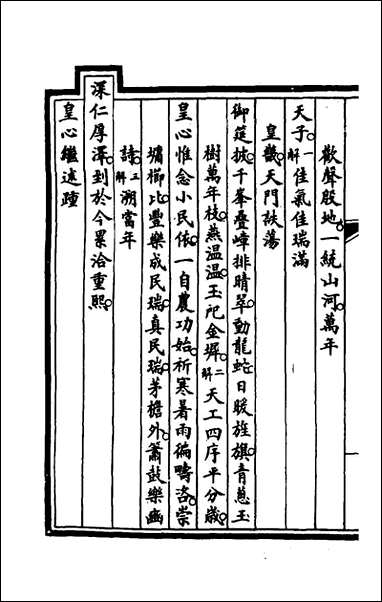 歡聲殷地一統山河萬年
天子一解佳氣佳瑞滿
皇畿天門詄蕩
御筵披千峯疊嶂排晴翠動龍蛇日暖旌旗青蔥玉
樹萬年枝燕溫溫玉戺金墀二解天工四序平分歲
皇心惟念小民依一自農功始祈寒暑雨徧疇咨崇
墉櫛比豐樂成民瑞真民瑞茅檐外簫鼓樂豳
詩三解溯當年
深仁厚澤到於今累洽重熙
皇心繼述踵